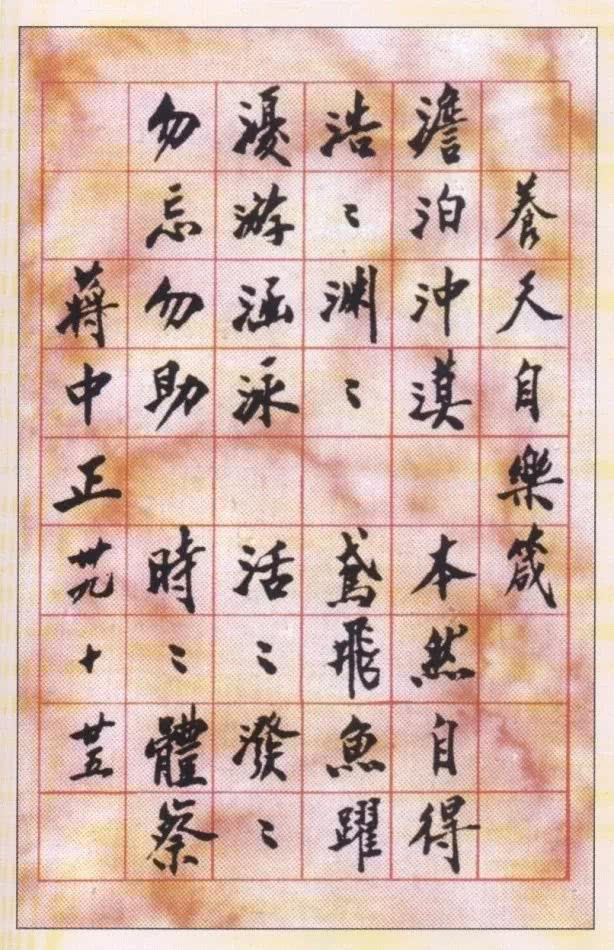 養天自樂箴
澹泊沖漠 本然自得
浩〻淵〻 鳶飛魚躍
優游涵泳 活〻潑〻
勿忘勿助 時〻體察
蔣中正 廿九 十 廿五